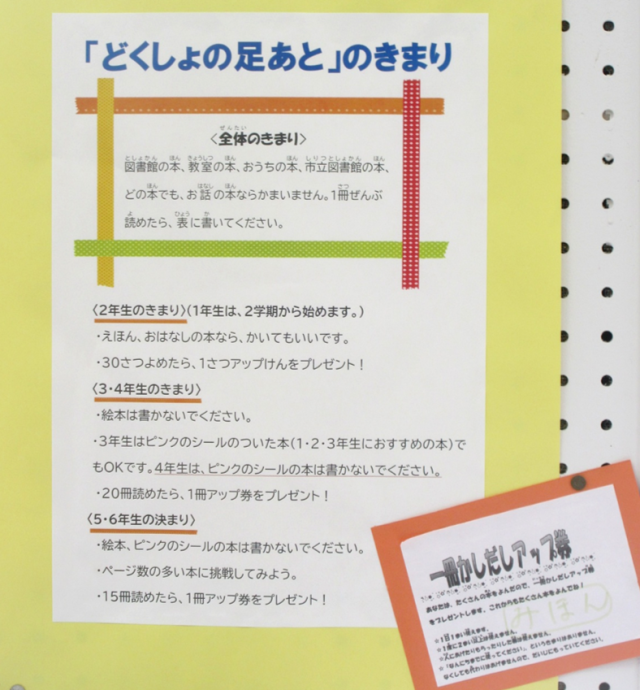 「どくしょの足あと」のきまり
〈全体のきまり〉
図書館の本、教室の本、おうちの本、市立図書館の本、
どの本でも、お話の本ならかまいません。1冊ぜんぶ
読めたら、表に書いてください。
〈2年生のきまり〉(1年生は、2学期から始めます。)
・えほん、おはなしの本なら、かいてもいいです。
・30さつよめたら、1さつアップけんをプレゼント！
〈3・4年生のきまり〉
・絵本は書かないでください。
・3年生はピンクのシールのついた本(1・2・3年生におすすめの本)で
もOKです。4年生は、ピンクのシールの本は書かないでください。
・20冊読めたら、1冊アップ券をプレゼント！
〈5・6年生の決まり〉
・絵本、ピンクのシールの本は書かないでください。
・ページ数の多い本に挑戦してみよう。
・15冊読めたら、1冊アップ券をプレゼント！
一冊かしだしアップ券
あなたは、たくさんの本をよんだので、一冊かしだしアップ券
をプレゼントします。これからもたくさん本をよんでね！
みほん
なくしても代わりはあげませんので、だいじにもっていてください。